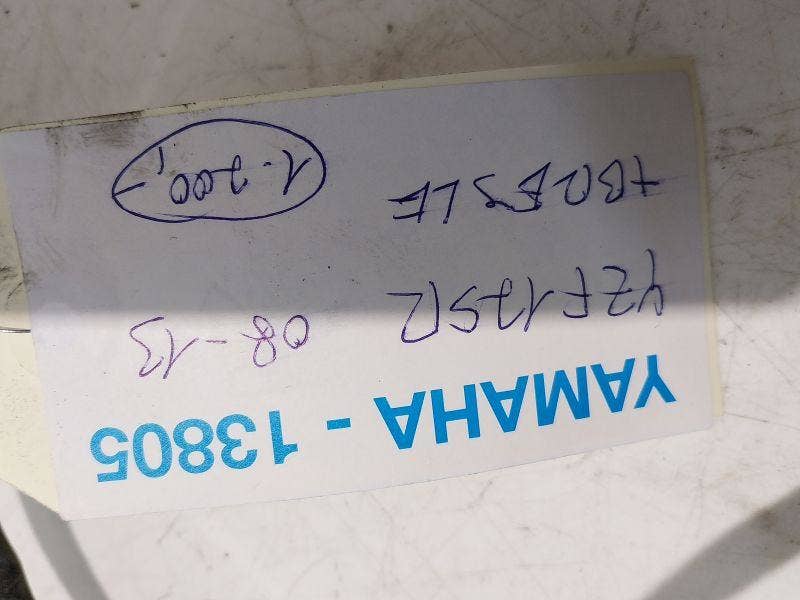 YAMAHA - 13805
YZF125R 08-13
1.200,-